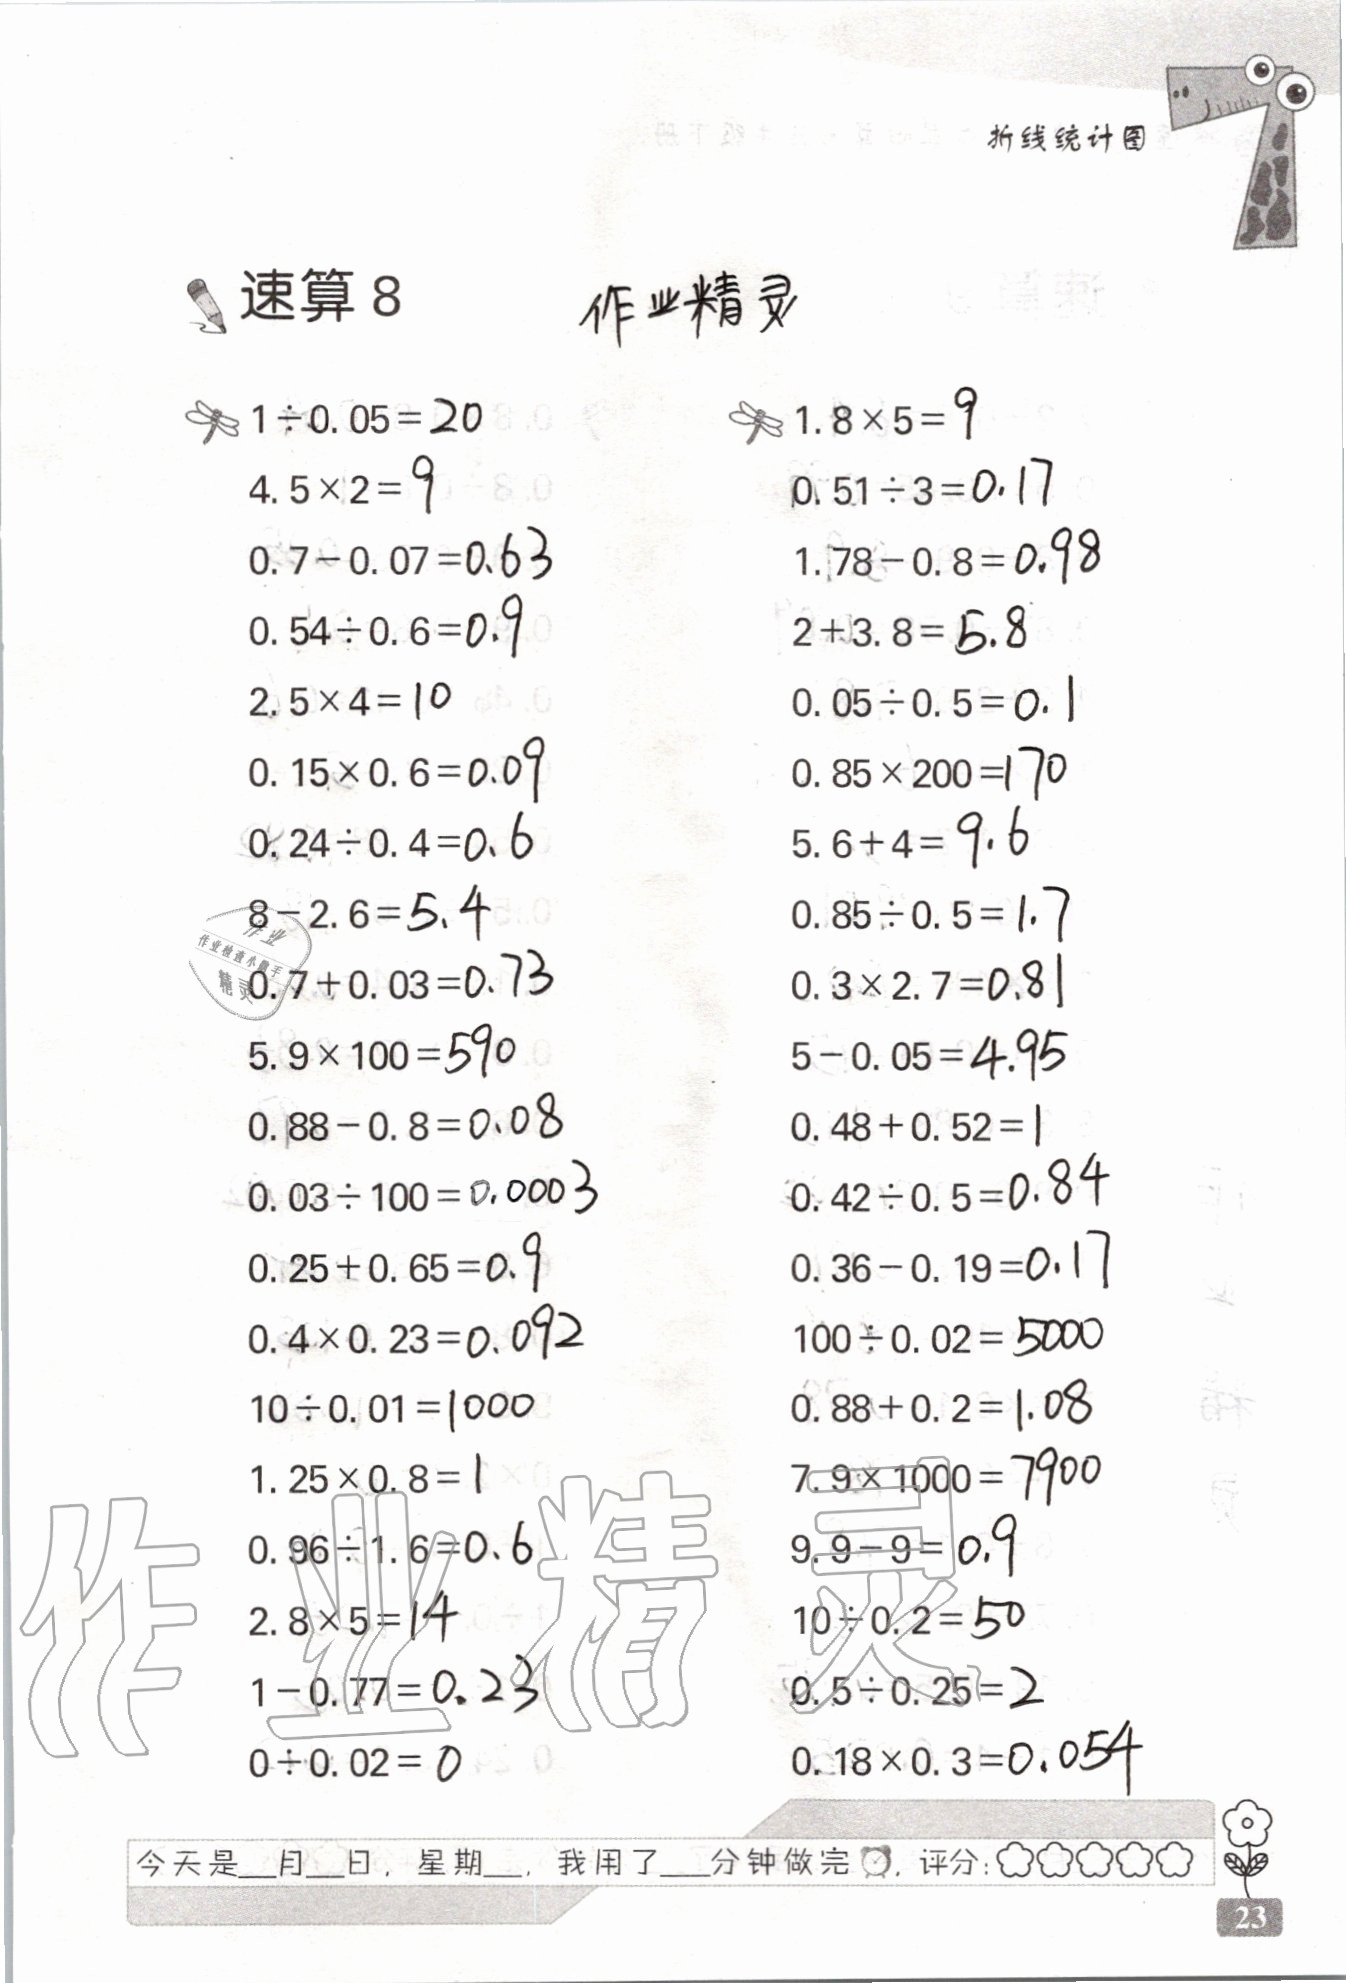 折线统计图
速算 8
作业精灵
1÷0.05=20
4.5×2=9
0.7-0.07=0.63
0.54÷0.6=0.9
2.5×4=10
0.15×0.6=0.09
0.24÷0.4=0.6
8-2.6=5.4
0.7+0.03=0.73
5.9×100=590
0.88-0.8=0.08
0.03÷100=0.0003
0.25+0.65=0.9
0.4×0.23=0.092
10÷0.01=1000
1.25×0.8=1
0.96÷1.6=0.6
2.8×5=14
1-0.77=0.23
0÷0.02=0
1.8×5=9
0.51÷3=0.17
1.78-0.8=0.98
2+3.8=5.8
0.05÷0.5=0.1
0.85×200=170
5.6+4=9.6
0.85÷0.5=1.7
0.3×2.7=0.81
5-0.05=4.95
0.48+0.52=1
0.42÷0.5=0.84
0.36-0.19=0.17
100÷0.02=5000
0.88+0.2=1.08
7.9×1000=7900
9.9-9=0.9
10÷0.2=50
0.5÷0.25=2
0.18×0.3=0.054
作业
作业检查小帮手
精灵
作业精灵
今天是__月__日，星期__，我用了___分钟做完，评分：
23